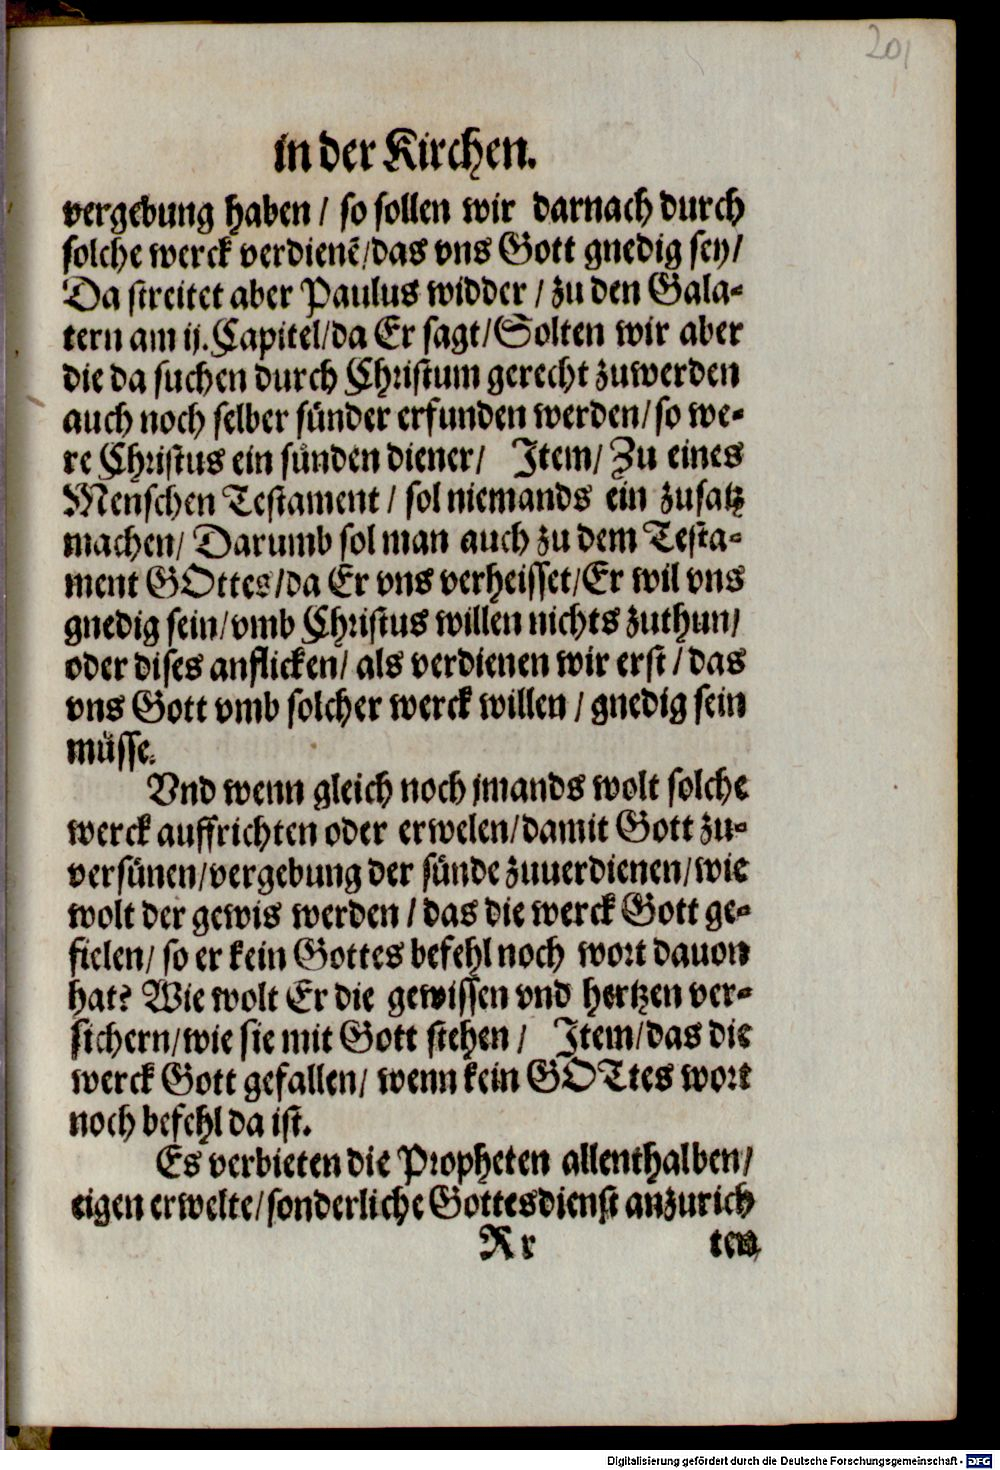 201
in der Kirchen.
vergebung haben / so sollen wir darnach durch
solche werck verdienē / das vns Gott gnedig sey /
Da streitet aber Paulus widder / zu den Gala-
tern am ij. Capitel / da Er sagt / Solten wir aber
die da suchen durch Christum gerecht zuwerden
auch noch selber sünder erfunden werden / so we-
re Christus ein sünden diener / Item / Zu eines
Menschen Testament / sol niemands ein zusatz
machen / Darumb sol man auch zu dem Testa-
ment GOttes / da Er vns verheisset / Er wil vns
gnedig sein / vmb Christus willen nichts zuthun /
oder dises anflicken / als verdienen wir erst / das
vns Gott vmb solcher werck willen / gnedig sein
müsse.
Vnd wenn gleich noch jmands wolt solche
werck auffrichten oder erwelen / damit Gott zu-
versünen / vergebung der sünde zuuerdienen / wie
wolt der gewis werden / das die werck Gott ge-
fielen / so er kein Gottes befehl noch wort dauon
hat? Wie wolt Er die gewissen vnd hertzen ver-
sichern / wie sie mit Gott stehen / Item / das die
werck Gott gefallen / wenn kein GOTtes wort
noch befehl da ist.
Es verbieten die Propheten allenthalben /
eigen erwelte / sonderliche Gottesdienst anzurich
Rr ten
Digitalisierung gefördert durch die Deutsche Forschungsgemeinschaft - DFG